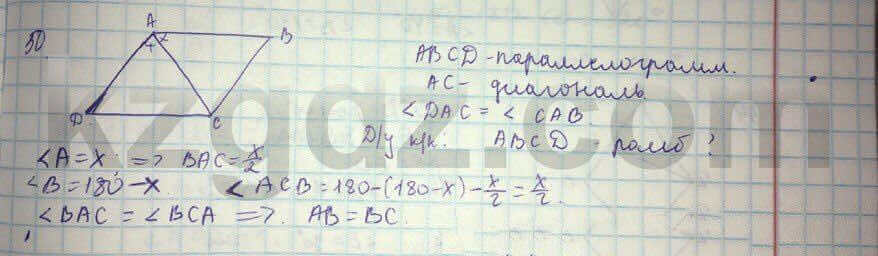 50.
A
B
D
C
ABCD - параллелограмм.
AC - диагональ
<DAC = < CAB.
Д/у м/к. ABCD - ромб ?
<A = x => BAC = x/2
<B = 180 - x. < ACB = 180 - (180 - x) - x/2 = x/2.
<BAC = <BCA => AB = BC.
kzgdz.com